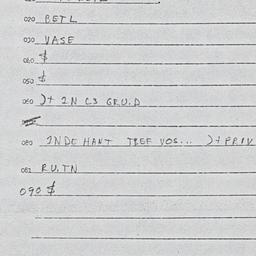 020 BETL
030 VASE
040 $
050 $
060 )+ IN C3 GRU.D
080 INDE HANT TREF VOS... )+ PRIV
081 RU.TN
090 $